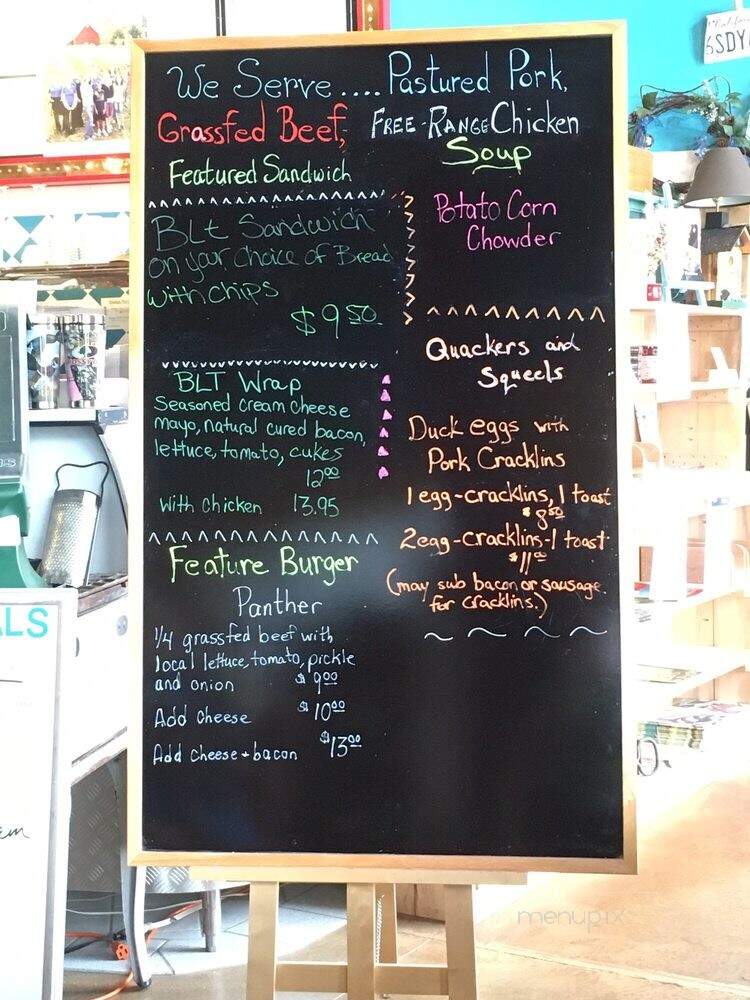 We Serve.... Pastured Pork,
Grassfed Beef, Free-Range Chicken
Featured Sandwich
BLt Sandwich
on your choice of Bread
with chips
$9.50
BLT Wrap
Seasoned cream cheese
mayo, natural cured bacon,
lettuce, tomato, cukes
12.00
With chicken 13.95
Feature Burger
Panther
1/4 grassfed beef with
local lettuce, tomato, pickle
and onion $9.00
Add cheese $10.00
Add cheese + bacon $13.00
Soup
Potato Corn
Chowder
Quackers and
Squeels
Duck eggs with
Pork Cracklins
1 egg-cracklins, 1 toast
$8.50
2 egg-cracklins-1 toast
(may sub bacon or sausage
for cracklins.)
ALS
menupix